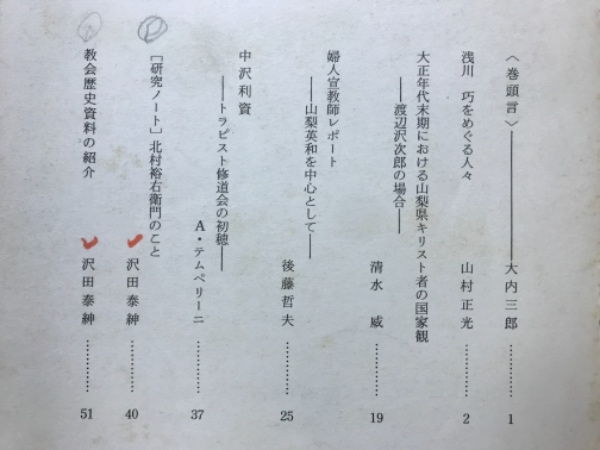 〈巻頭言〉――――大内三郎…………1
浅川 巧をめぐる人々 山村正光…………2
大正年代末期における山梨県キリスト者の国家観
――渡辺沢次郎の場合―― 清水 威…………19
婦人宣教師レポート
――山梨英和を中心として―― 後藤哲夫…………25
中沢利資
――トラピスト修道会の初穂―― A・テムペリーニ…………37
[研究ノート]北村裕右衛門のこと 沢田泰紳…………40
教会歴史資料の紹介 沢田泰紳…………51